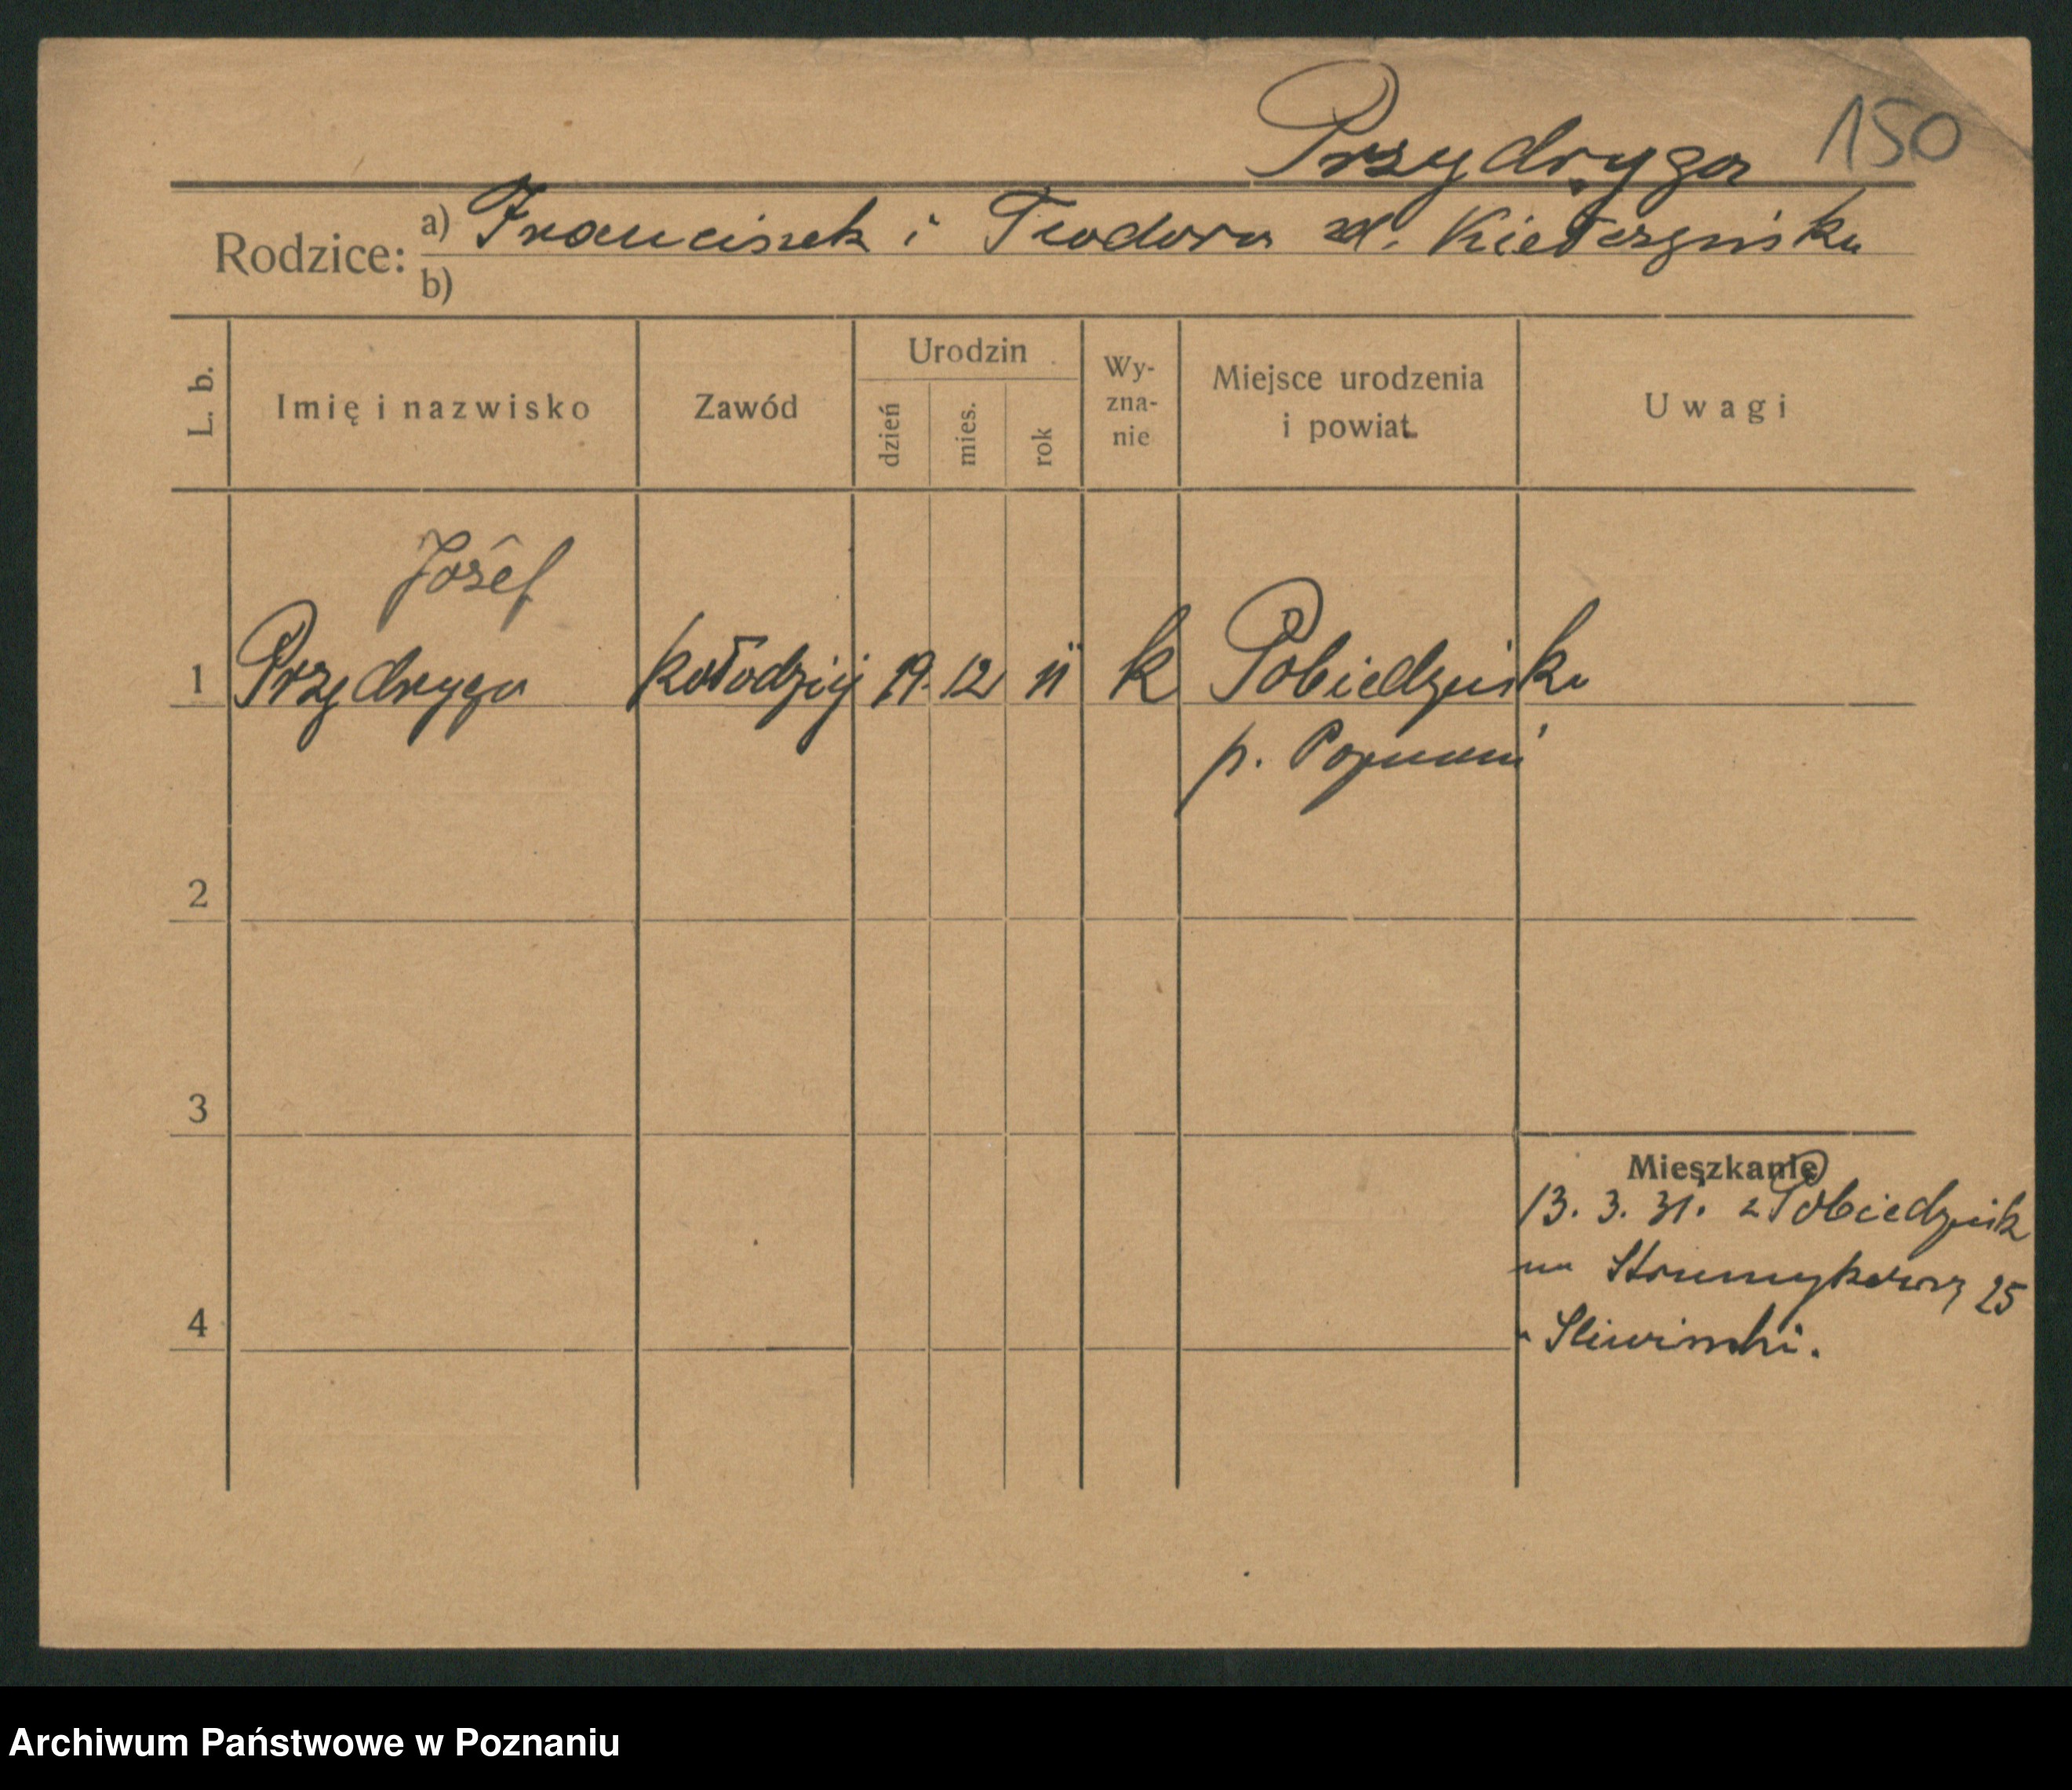 Przydryga 150
Rodzice: a) Franciszek i Teodora zd. Kiełczyńska
b)
L. b. Imię i nazwisko Zawód Urodzin dzień mies. rok Wy-zna-nie Miejsce urodzenia i powiat Uwagi
Józef
1 Przydryga kołodziej 19. 12 11 k Pobiedziska
p. Poznań
2
3
Mieszkanie
13. 3. 31. z Pobiedzisk
na Strumykową 25
4
Sliwinski.
Archiwum Państwowe w Poznaniu